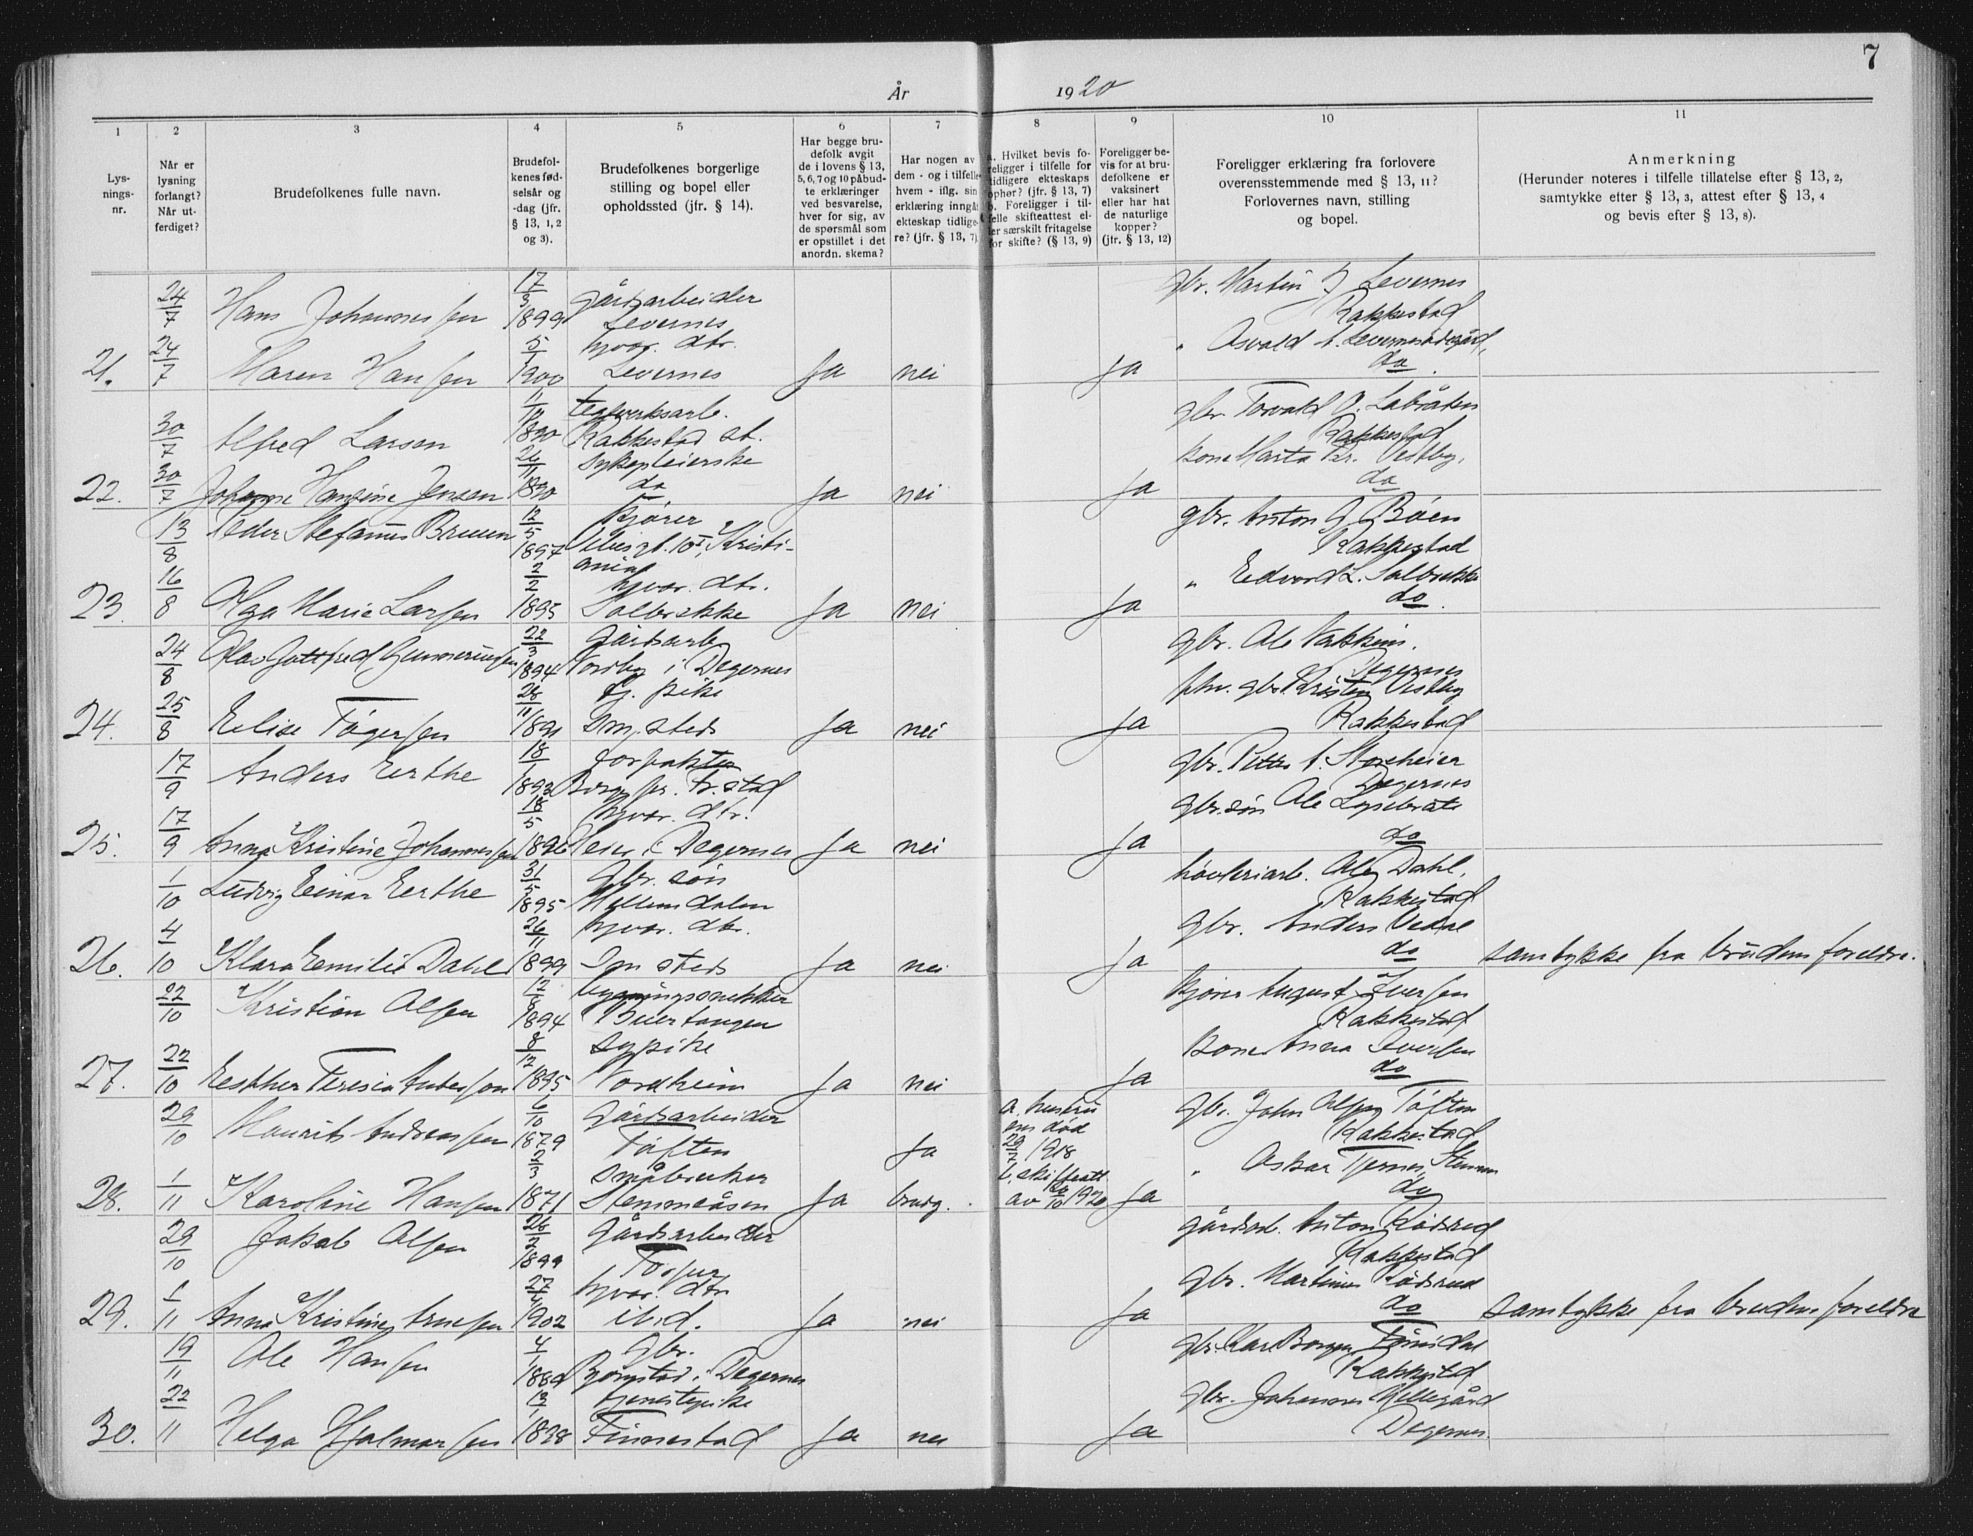 7
År 1920
1
2
3
4
5
6
7
8
9
10
11
Lys-
nings-
nr.
Når er
lysning
forlangt?
Når ut-
ferdiget?
Brudefolkenes fulle navn.
Brudefol-
kenes fød-
selsår og
-dag (jfr.
§ 13, 1, 2
og 3).
Brudefolkenes borgerlige
stilling og bopel eller
opholdssted (jfr. § 14).
Har begge bru-
defolk avgit
de i lovens § 13,
5, 6, 7 og 10 påbud-
te erklæringer
ved besvarelse,
hver for sig, av
de spørsmål som
er opstillet i det
anordn. skema?
Har nogen av
dem - og i tilfelle
hvem - iflg. sin
erklæring inngåt
ekteskap tidlige-
re? (jfr. § 13, 7)
a. Hvilket bevis fo-
religger i tilfelle for
tidligere ekteskaps
ophør? (jfr. § 13, 7)
b. Foreligger i til-
felle skifteattest el-
ler særskilt fritagelse
for skifte? (§ 13, 9)
Foreligger be-
vis for at bru-
defolkene er
vaksinert
eller har hat
de naturlige
kopper?
(jfr. § 13, 12)
Foreligger erklæring fra forlovere
overensstemmende med § 13, 11?
Forlovernes navn, stilling
og bopel.
Anmerkning
(Herunder noteres i tilfelle tillatelse efter § 13, 2,
samtykke efter § 13, 3, attest efter § 13, 4
og bevis efter § 13, 8).
24/7 Hans Johannessen 17/3 1899 Gårdsarbeider Levernes
gbr. Martin J. Levernes
Rakkestad
21. 24/7 Maren Hansen 5/1 1900 hjvær. dtr. Levernes Ja nei Ja
" Osvald A. Levernesødegård,
do.
30/7 Alfred Larsen 11/10 1890 teglverksarb. Rakkestad st.
gbr. Torvald O. Labråten
Rakkestad
22. 30/7 Johanne Hansine Jensen 26/11 1890 Sykepleierske do Ja nei Ja
kone Marta Kr. Vestby.
do
13/8 Peder Stefanus Bruun 12/5 1897 Kjører gt. 10 I, Kristi-
ania
gbr. Anton G. Bøen
Rakkestad
23. 16/8 Olga Marie Larsen 2/2 1895 hjvær. dtr. Solbrekke Ja nei Ja
" Edvard L. Solbrekke
do.
24/8 Olav Gottfred Gunnerussen 22/3 1894 Gårdsarb. Nordby i Degernes
gbr. Ole
Degernes
24. 25/8 Elise Tøgersen 28/11 1891 tj. pike sm. steds Ja nei Ja
fhv. gbr. Kristen Vestby
Rakkestad
17/9 Anders Eerthe 18/1 1893 forpakter Borge pr. Fr.stad
gbr. Petter A. Storeheier
Degernes
25. 17/9 Anna Kristine Johannessen 18/5 1896 hjvær. dtr. Heier i Degernes Ja nei Ja
gbr.søn Ole Lysebråte
do
1/10 Ludvig Einar Eerthe 31/5 1895 Gbr. søn
høvleriarb. Ole Dahl,
Rakkestad
26. 4/10 Klara Emilie Dahl 26/11 1899 hjvær. dtr. sm steds Ja nei Ja
gbr. Anders
do
samtykke fra brudens foreldre.
22/10 Kristian Olsen 12/8 1894 bygningssnekker Buertangen
Kjører August Iversen
Rakkestad
27. 22/10 Eesther Teresia Anderson 8/12 1895 Sypike Nordheim Ja nei Ja
Kone Anna Iversen
do
29/10 Maurits Andreassen 6/10 1879 Gårdsarbeider Tøften Ja
a. hustru
ens død
29/7 1918
gbr. John Olsen Tøften
Rakkestad
28. 1/11 Karoline Hansen 2/3 1871 småbruker Stemmeåsen Ja brudg. Ja
b. skifteatt
av 26/10 1920
" Oskar Tjernes,
do
29/10 Jakob Olsen 26/2 1899 Gårdsarbeider
gårdsb. Anton Rødsrud
Rakkestad
29. 1/11 Anna Kristine Arnesen 27/4 1902 hjvær. dtr ibid. Ja nei Ja
gbr. Martinus Rødsrud
do
samtykke fra brudens foreldre
19/11 Ole Hansen 4/1 1884 Gbr. Bjørnstad i Degernes
gbr. Karl Borgen
Rakkestad
30. 22/11 Helga Hjalmarsen 13/1 1898 tjenestepike Finnestad Ja nei Ja
gbr. Johannes Hellegård
Degernes.